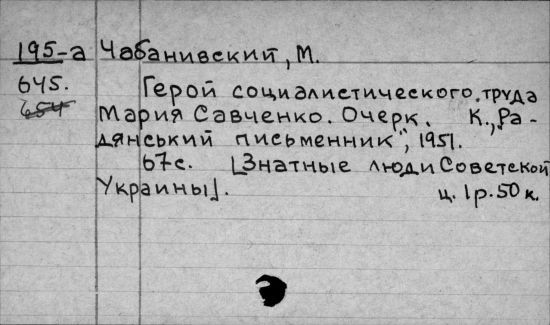 195-а Чабанивский, М.
645. Герой социалистического труда
654 Мария Савченко. Очерк. К., „Ра-
дянський письменник", 1951.
67с. [Знатные люди Советской
Украины]. ц. 1р.50к.